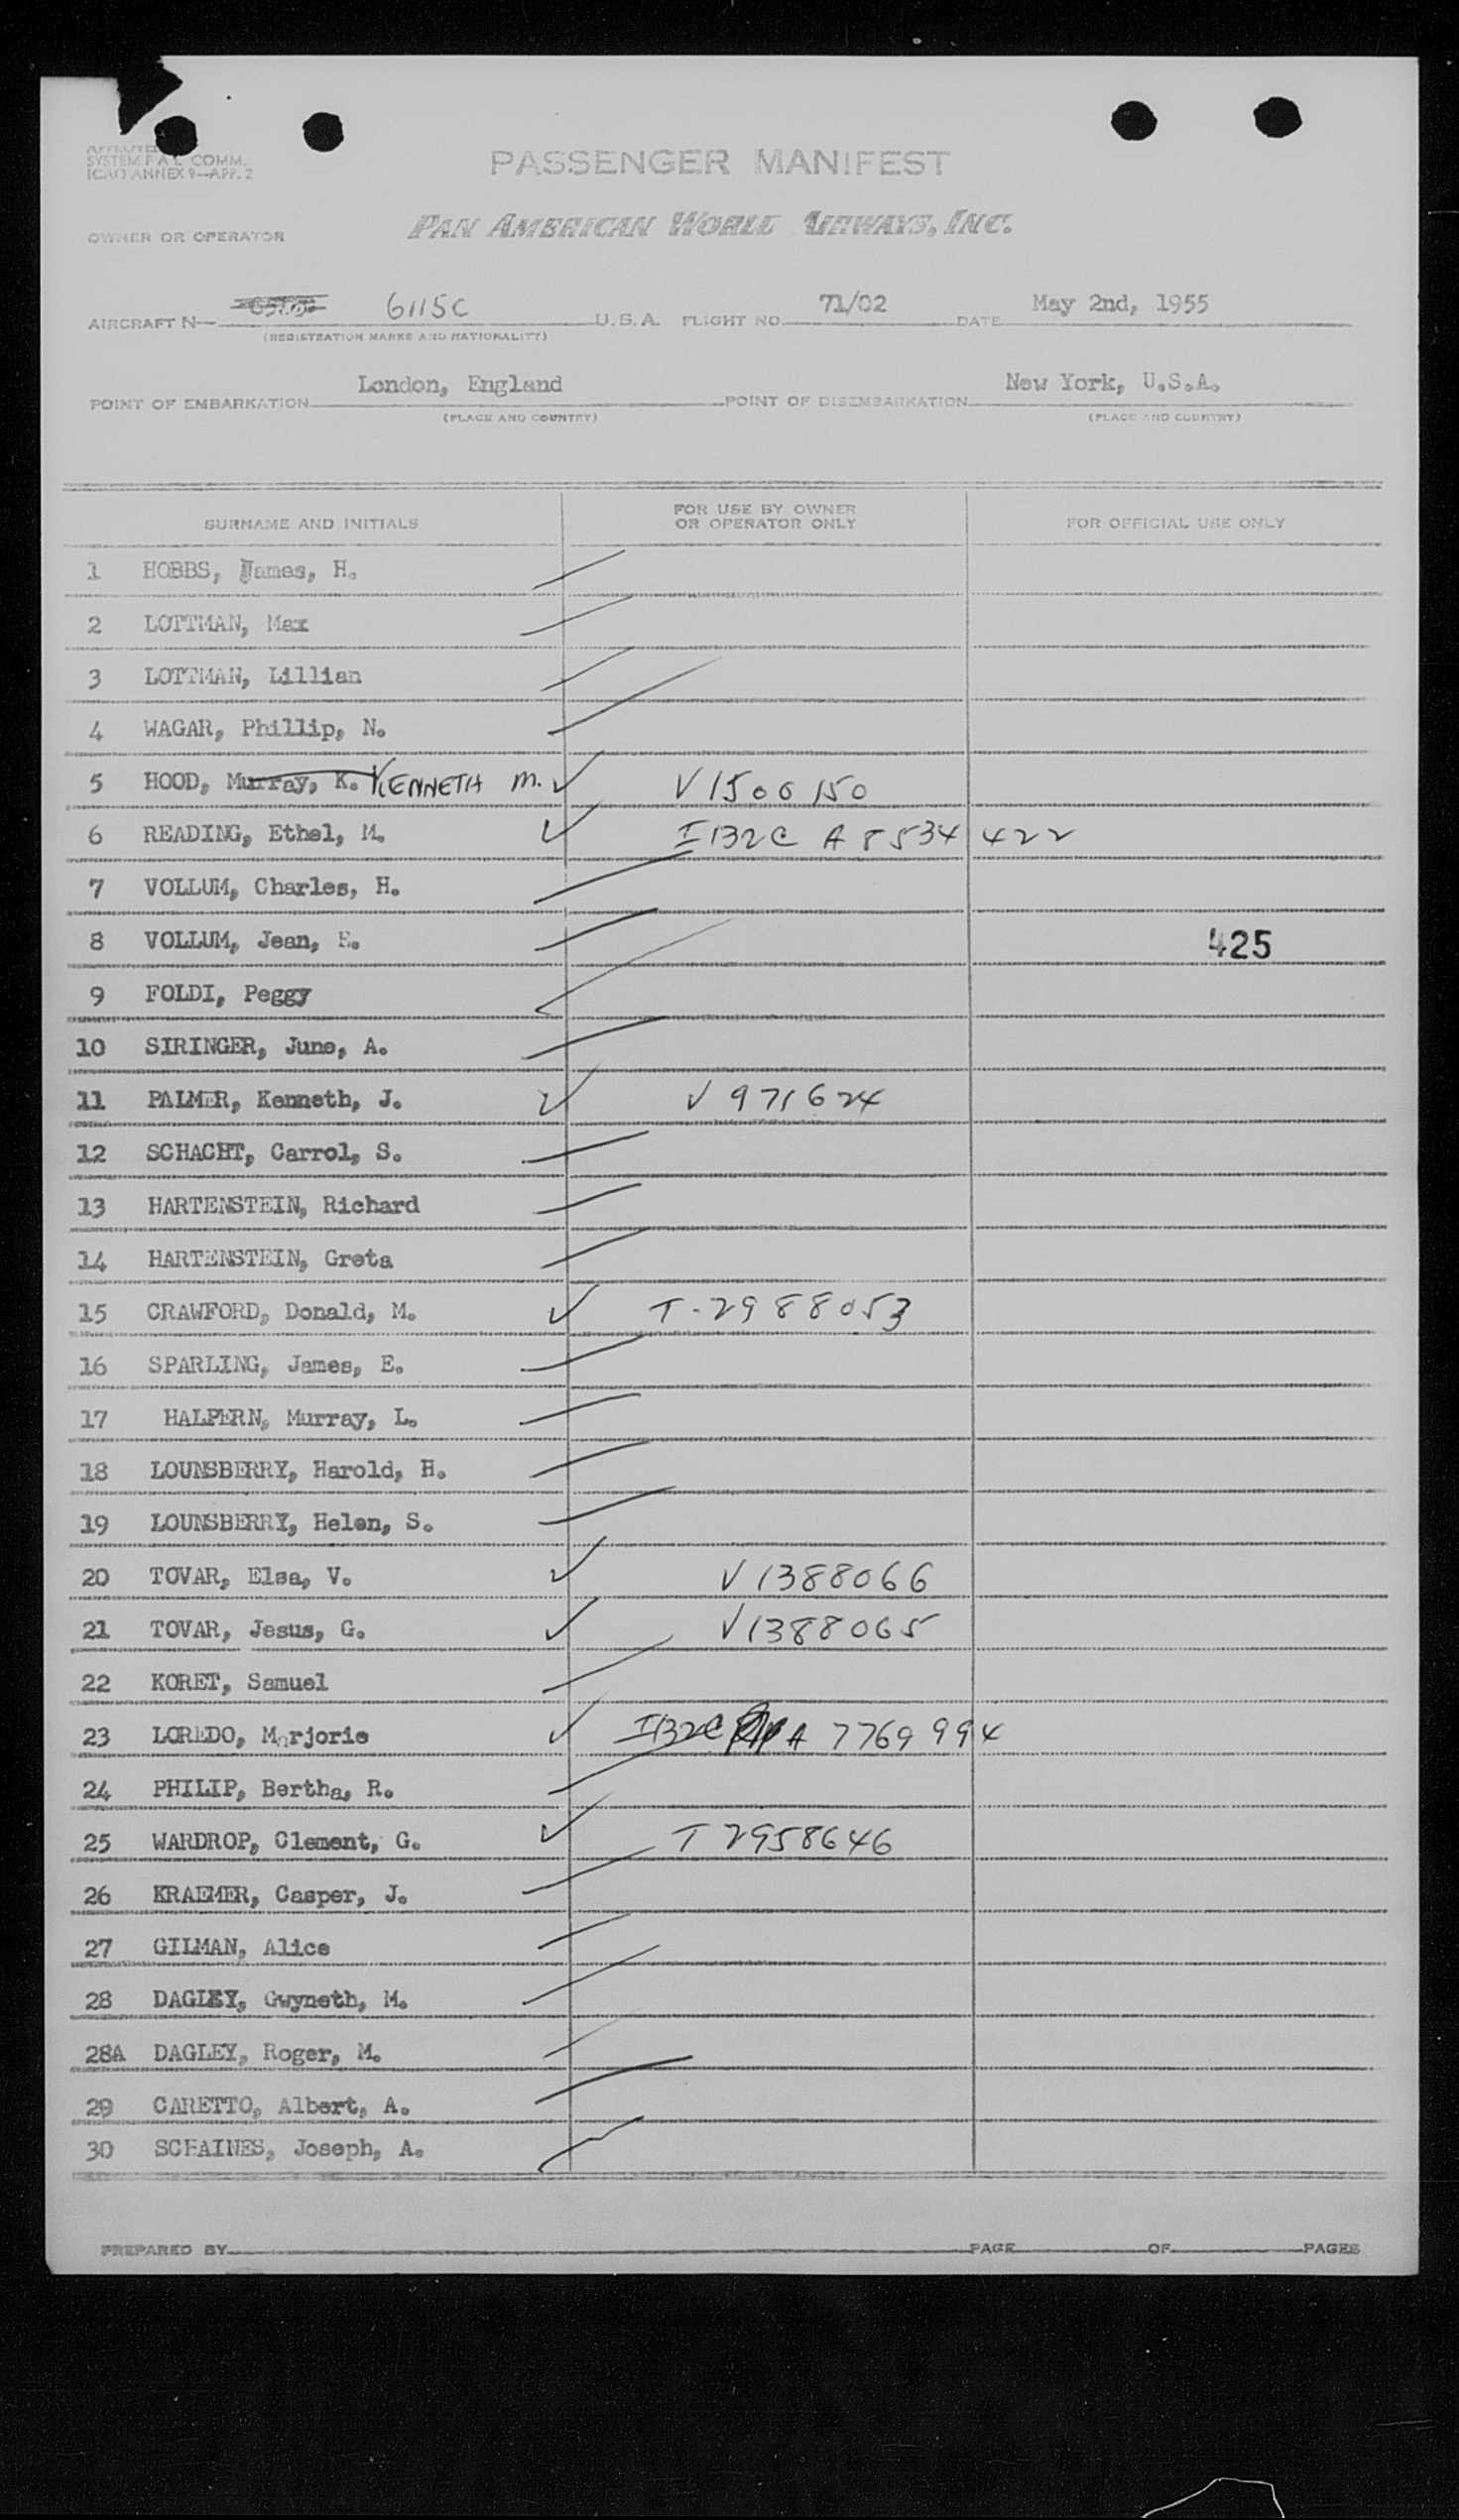 APPROVED
SYSTEM F A L COMM.
ICAO ANNEX 9—APP. 2
PASSENGER MANIFEST
OWNER OR OPERATOR PAN AMERICAN WORLD AIRWAYS, INC.
AIRCRAFT N— 6115C U.S.A. FLIGHT NO. 71/02 DATE May 2nd, 1955
(REGISTRATION MARKS AND NATIONALITY)
POINT OF EMBARKATION London, England POINT OF DISEMBARKATION New York, U.S.A.
(PLACE AND COUNTRY) (PLACE AND COUNTRY)
SURNAME AND INITIALS FOR USE BY OWNER OR OPERATOR ONLY FOR OFFICIAL USE ONLY
1 HOBBS, James, H.
2 LOTTMAN, Max
3 LOTTMAN, Lillian
4 WAGAR, Phillip, N.
5 HOOD, Murray, K. KENNETH M. V1500150
6 READING, Ethel, M. I132C A8534422
7 VOLLUM, Charles, H.
8 VOLLUM, Jean, E. 425
9 FOLDI, Peggy
10 SIRINGER, June, A.
11 PALMER, Kenneth, J. V971624
12 SCHACHT, Carrol, S.
13 HARTENSTEIN, Richard
14 HARTENSTEIN, Greta
15 CRAWFORD, Donald, M. T-2988053
16 SPARLING, James, E.
17 HALPERN, Murray, L.
18 LOUNSBERRY, Harold, H.
19 LOUNSBERRY, Helen, S.
20 TOVAR, Elsa, V. V1388066
21 TOVAR, Jesus, G. V1388065
22 KORET, Samuel
23 LOREDO, Marjorie I132C A 7769994
24 PHILIP, Bertha, R.
25 WARDROP, Clement, G. T 2958646
26 KRAEMER, Casper, J.
27 GILMAN, Alice
28 DAGLEY, Gwyneth, M.
28A DAGLEY, Roger, M.
29 CARETTO, Albert, A.
30 SCHAINES, Joseph, A.
PREPARED BY PAGE OF PAGES